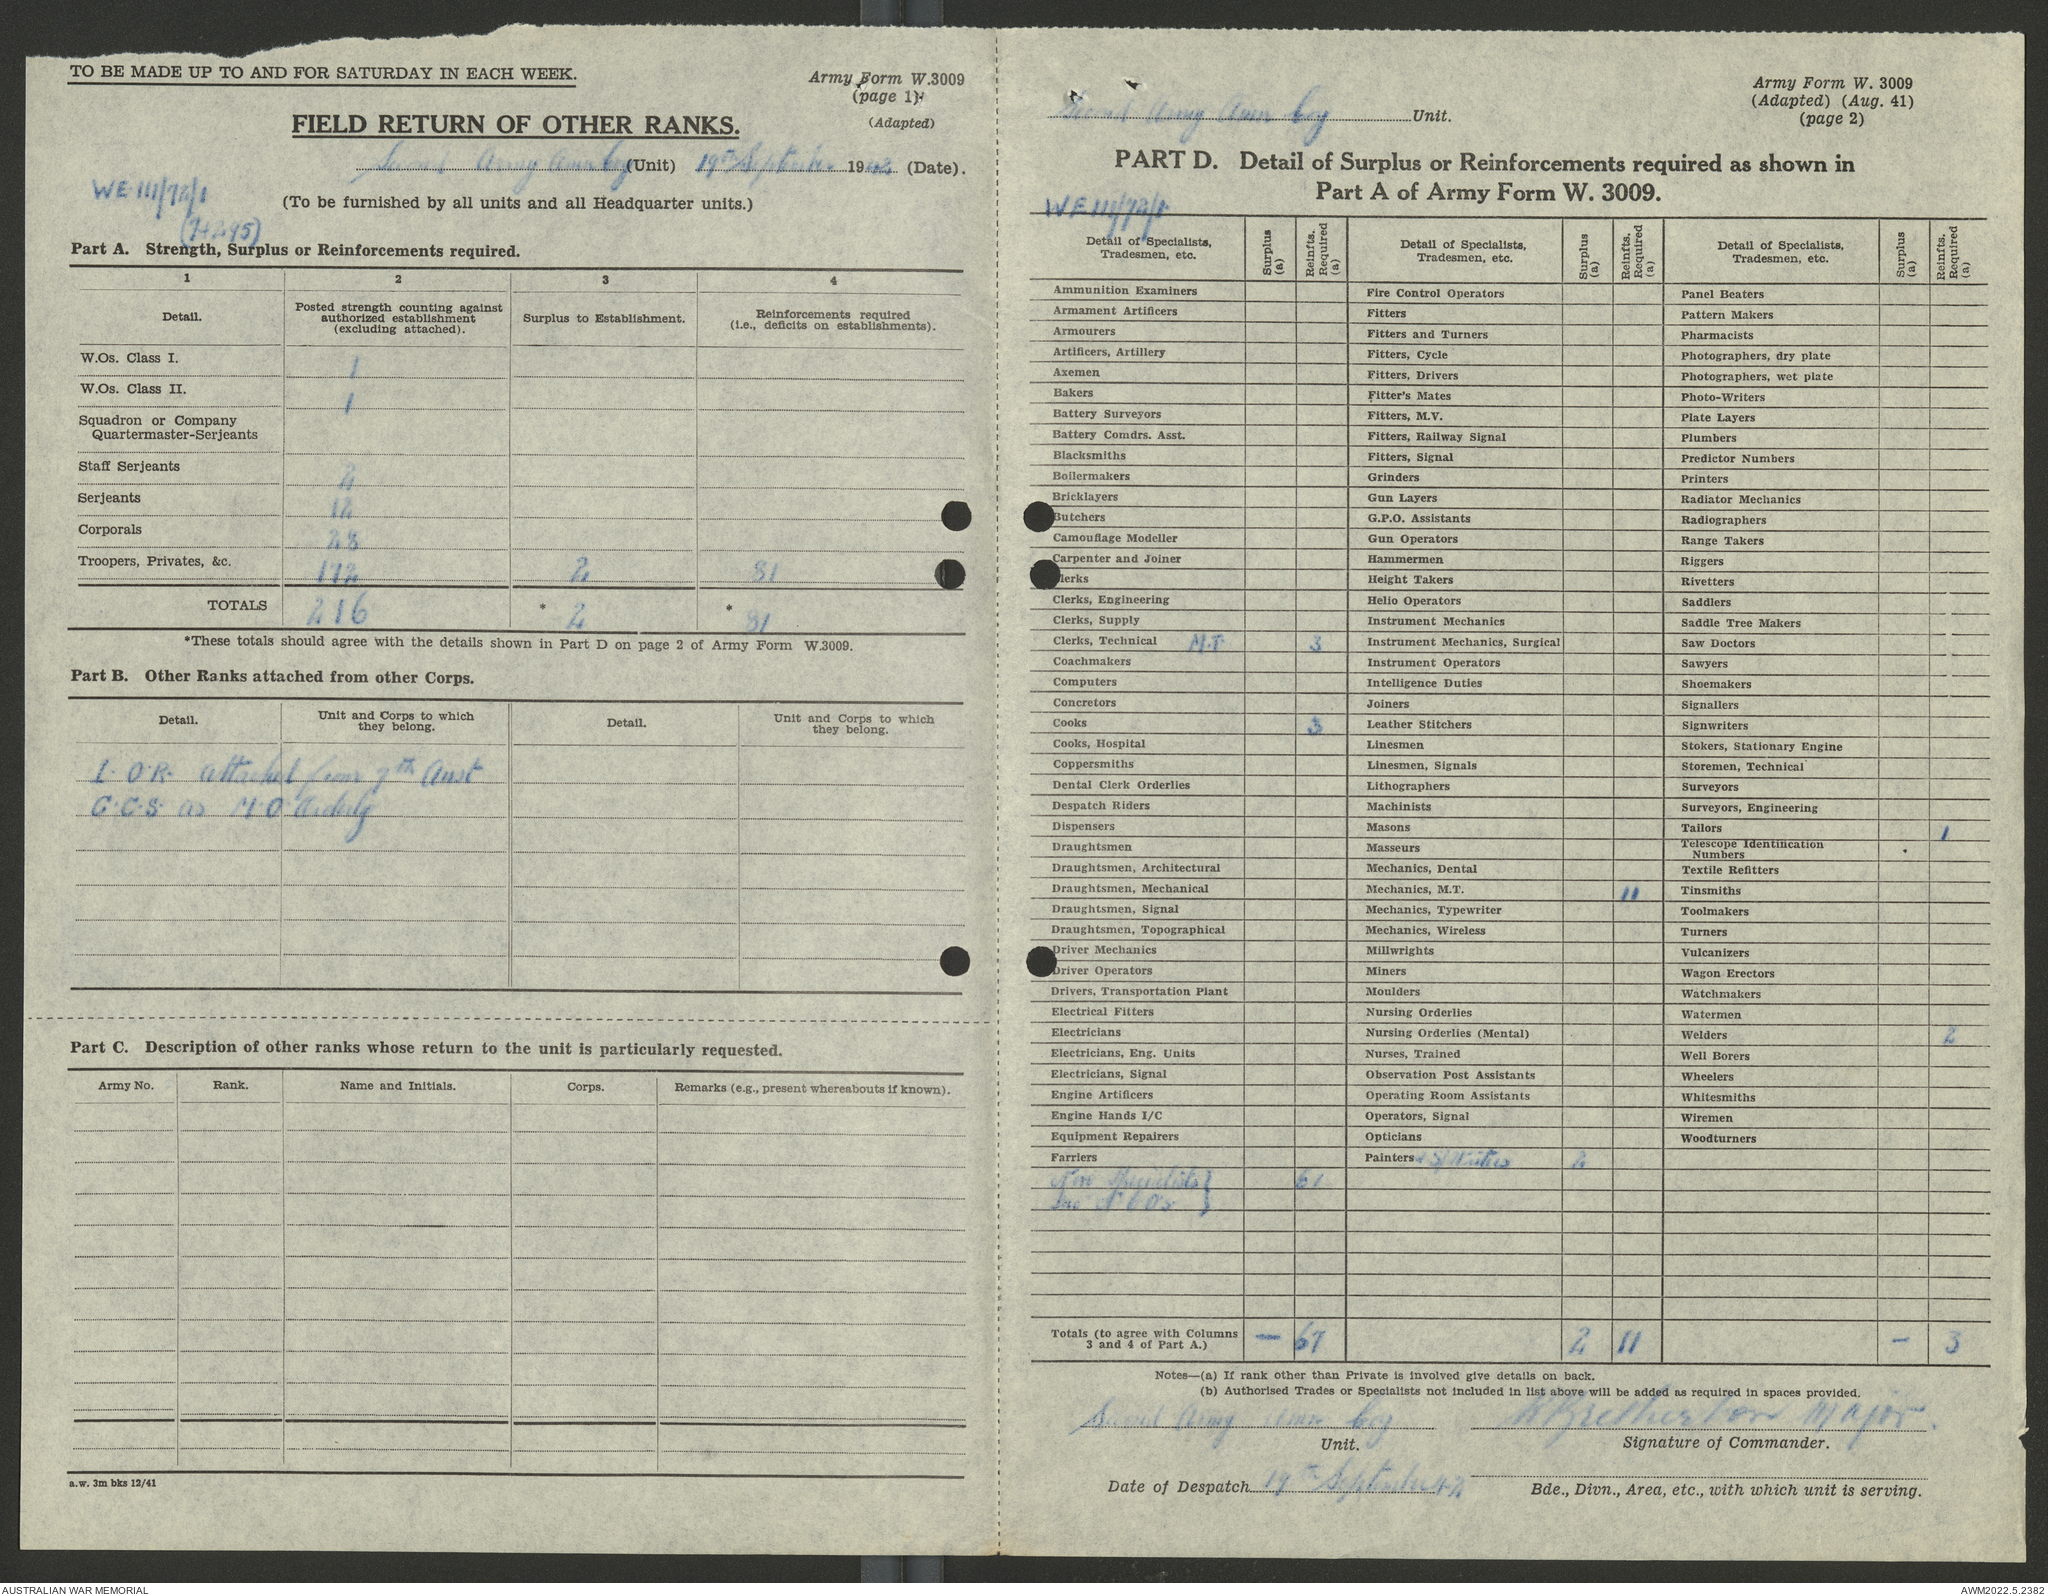 TO BE MADE UP TO AND FOR SATURDAY IN EACH WEEK.
Army Form W.3009
(page 1)
(Adapted)
FIELD RETURN OF OTHER RANKS.
Second Army Amn Coy (Unit) 19th September 1942 (Date).
WE 111/72/1
(To be furnished by all units and all Headquarter units.)
Part A. Strength, Surplus or Reinforcements required.
1 2 3 4
Detail. Posted strength counting against authorized establishment (excluding attached). Surplus to Establishment. Reinforcements required (i.e., deficits on establishments).
W.Os. Class I. 1
W.Os. Class II. 1
Squadron or Company
Quartermaster-Serjeants
Staff Serjeants 2
Serjeants 12
Corporals 28
Troopers, Privates, &c. 172 2 81
TOTALS 216 * 2 * 81
*These totals should agree with the details shown in Part D on page 2 of Army Form W.3009.
Part B. Other Ranks attached from other Corps.
Detail. Unit and Corps to which they belong. Detail. Unit and Corps to which they belong.
1. O.R. attached from 7th Aust
C.C.S as M.O Orderly
Part C. Description of other ranks whose return to the unit is particularly requested.
Army No. Rank. Name and Initials. Corps. Remarks (e.g., present whereabouts if known).
a.w. 3m bks 12/41
Army Form W. 3009
(Adapted) (Aug. 41)
(page 2)
Second Army Amn Coy Unit.
PART D. Detail of Surplus or Reinforcements required as shown in
Part A of Army Form W. 3009.
WE 111/72/1
Detail of Specialists, Tradesmen, etc. Surplus (a) Reinfts. Required (a) Detail of Specialists, Tradesmen, etc. Surplus (a) Reinfts. Required (a) Detail of Specialists, Tradesmen, etc. Surplus (a) Reinfts. Required (a)
Ammunition Examiners Fire Control Operators Panel Beaters
Armament Artificers Fitters Pattern Makers
Armourers Fitters and Turners Pharmacists
Artificers, Artillery Fitters, Cycle Photographers, dry plate
Axemen Fitters, Drivers Photographers, wet plate
Bakers Fitter's Mates Photo-Writers
Battery Surveyors Fitters, M.V. Plate Layers
Battery Comdrs. Asst. Fitters, Railway Signal Plumbers
Blacksmiths Fitters, Signal Predictor Numbers
Boilermakers Grinders Printers
Bricklayers Gun Layers Radiator Mechanics
Butchers G.P.O. Assistants Radiographers
Camouflage Modeller Gun Operators Range Takers
Carpenter and Joiner Hammermen Riggers
Clerks Height Takers Rivetters
Clerks, Engineering Helio Operators Saddlers
Clerks, Supply Instrument Mechanics Saddle Tree Makers
Clerks, Technical M.T. 3 Instrument Mechanics, Surgical Saw Doctors
Coachmakers Instrument Operators Sawyers
Computers Intelligence Duties Shoemakers
Concretors Joiners Signallers
Cooks 3 Leather Stitchers Signwriters
Cooks, Hospital Linesmen Stokers, Stationary Engine
Coppersmiths Linesmen, Signals Storemen, Technical
Dental Clerk Orderlies Lithographers Surveyors
Despatch Riders Machinists Surveyors, Engineering
Dispensers Masons Tailors 1
Draughtsmen Masseurs Telescope Identification Numbers
Draughtsmen, Architectural Mechanics, Dental Textile Refitters
Draughtsmen, Mechanical Mechanics, M.T. 11 Tinsmiths
Draughtsmen, Signal Mechanics, Typewriter Toolmakers
Draughtsmen, Topographical Mechanics, Wireless Turners
Driver Mechanics Millwrights Vulcanizers
Driver Operators Miners Wagon Erectors
Drivers, Transportation Plant Moulders Watchmakers
Electrical Fitters Nursing Orderlies Watermen
Electricians Nursing Orderlies (Mental) Welders 2
Electricians, Eng. Units Nurses, Trained Well Borers
Electricians, Signal Observation Post Assistants Wheelers
Engine Artificers Operating Room Assistants Whitesmiths
Engine Hands I/C Operators, Signal Wiremen
Equipment Repairers Opticians Woodturners
Farriers Painters & S/Writers 2
Non Specialists } 61
Inc N C O's
Totals (to agree with Columns 3 and 4 of Part A.) — 67 2 11 — 3
Notes—(a) If rank other than Private is involved give details on back.
(b) Authorised Trades or Specialists not included in list above will be added as required in spaces provided.
Second Army Amn Coy Bretherton Major.
Unit. Signature of Commander.
Date of Despatch 19th September 42
Bde., Divn., Area, etc., with which unit is serving.
AUSTRALIAN WAR MEMORIAL AWM2022.5.2382